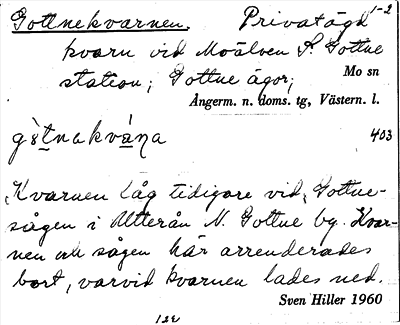 Gottnekvarnen. Privatägd 1-2
kvarn vid Moälven S. Gottne
station; Gottne ägor; Mo sn
Ångerm. n. doms. tg, Västern. l.
403
"Kvarnen låg tidigare vid Gottne-
sågen i Utterån N. Gottne by. Kvar-
nen och sågen här arrenderades
bort, varvid kvarnen lades ned.
Sven Hiller 1960